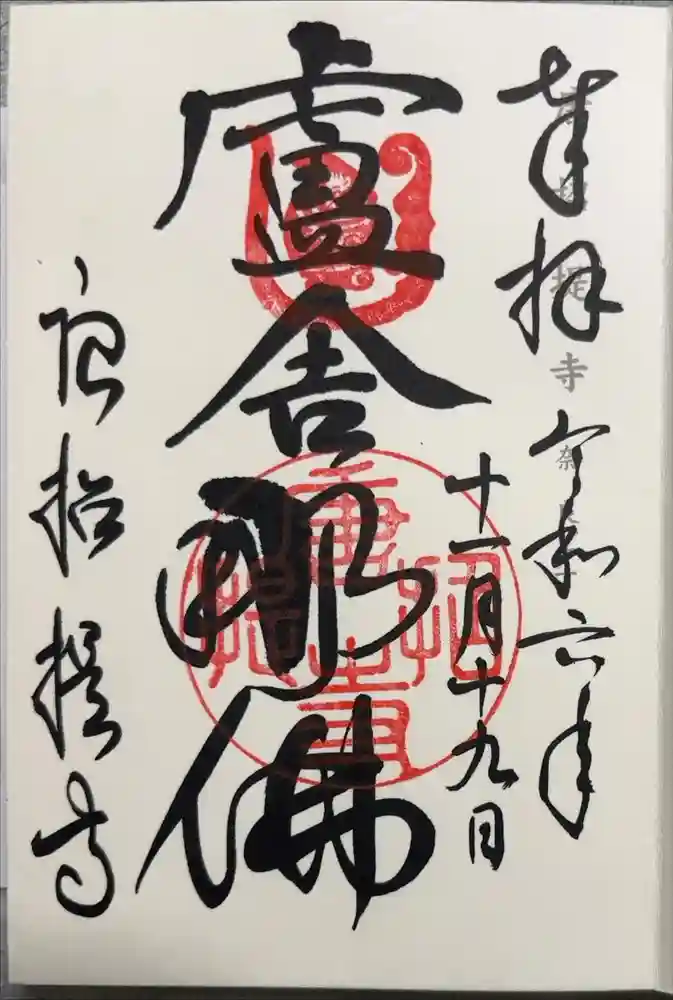 奉拝
令和六年
十一月十九日
盧舎那佛
唐招提寺
唐招提寺